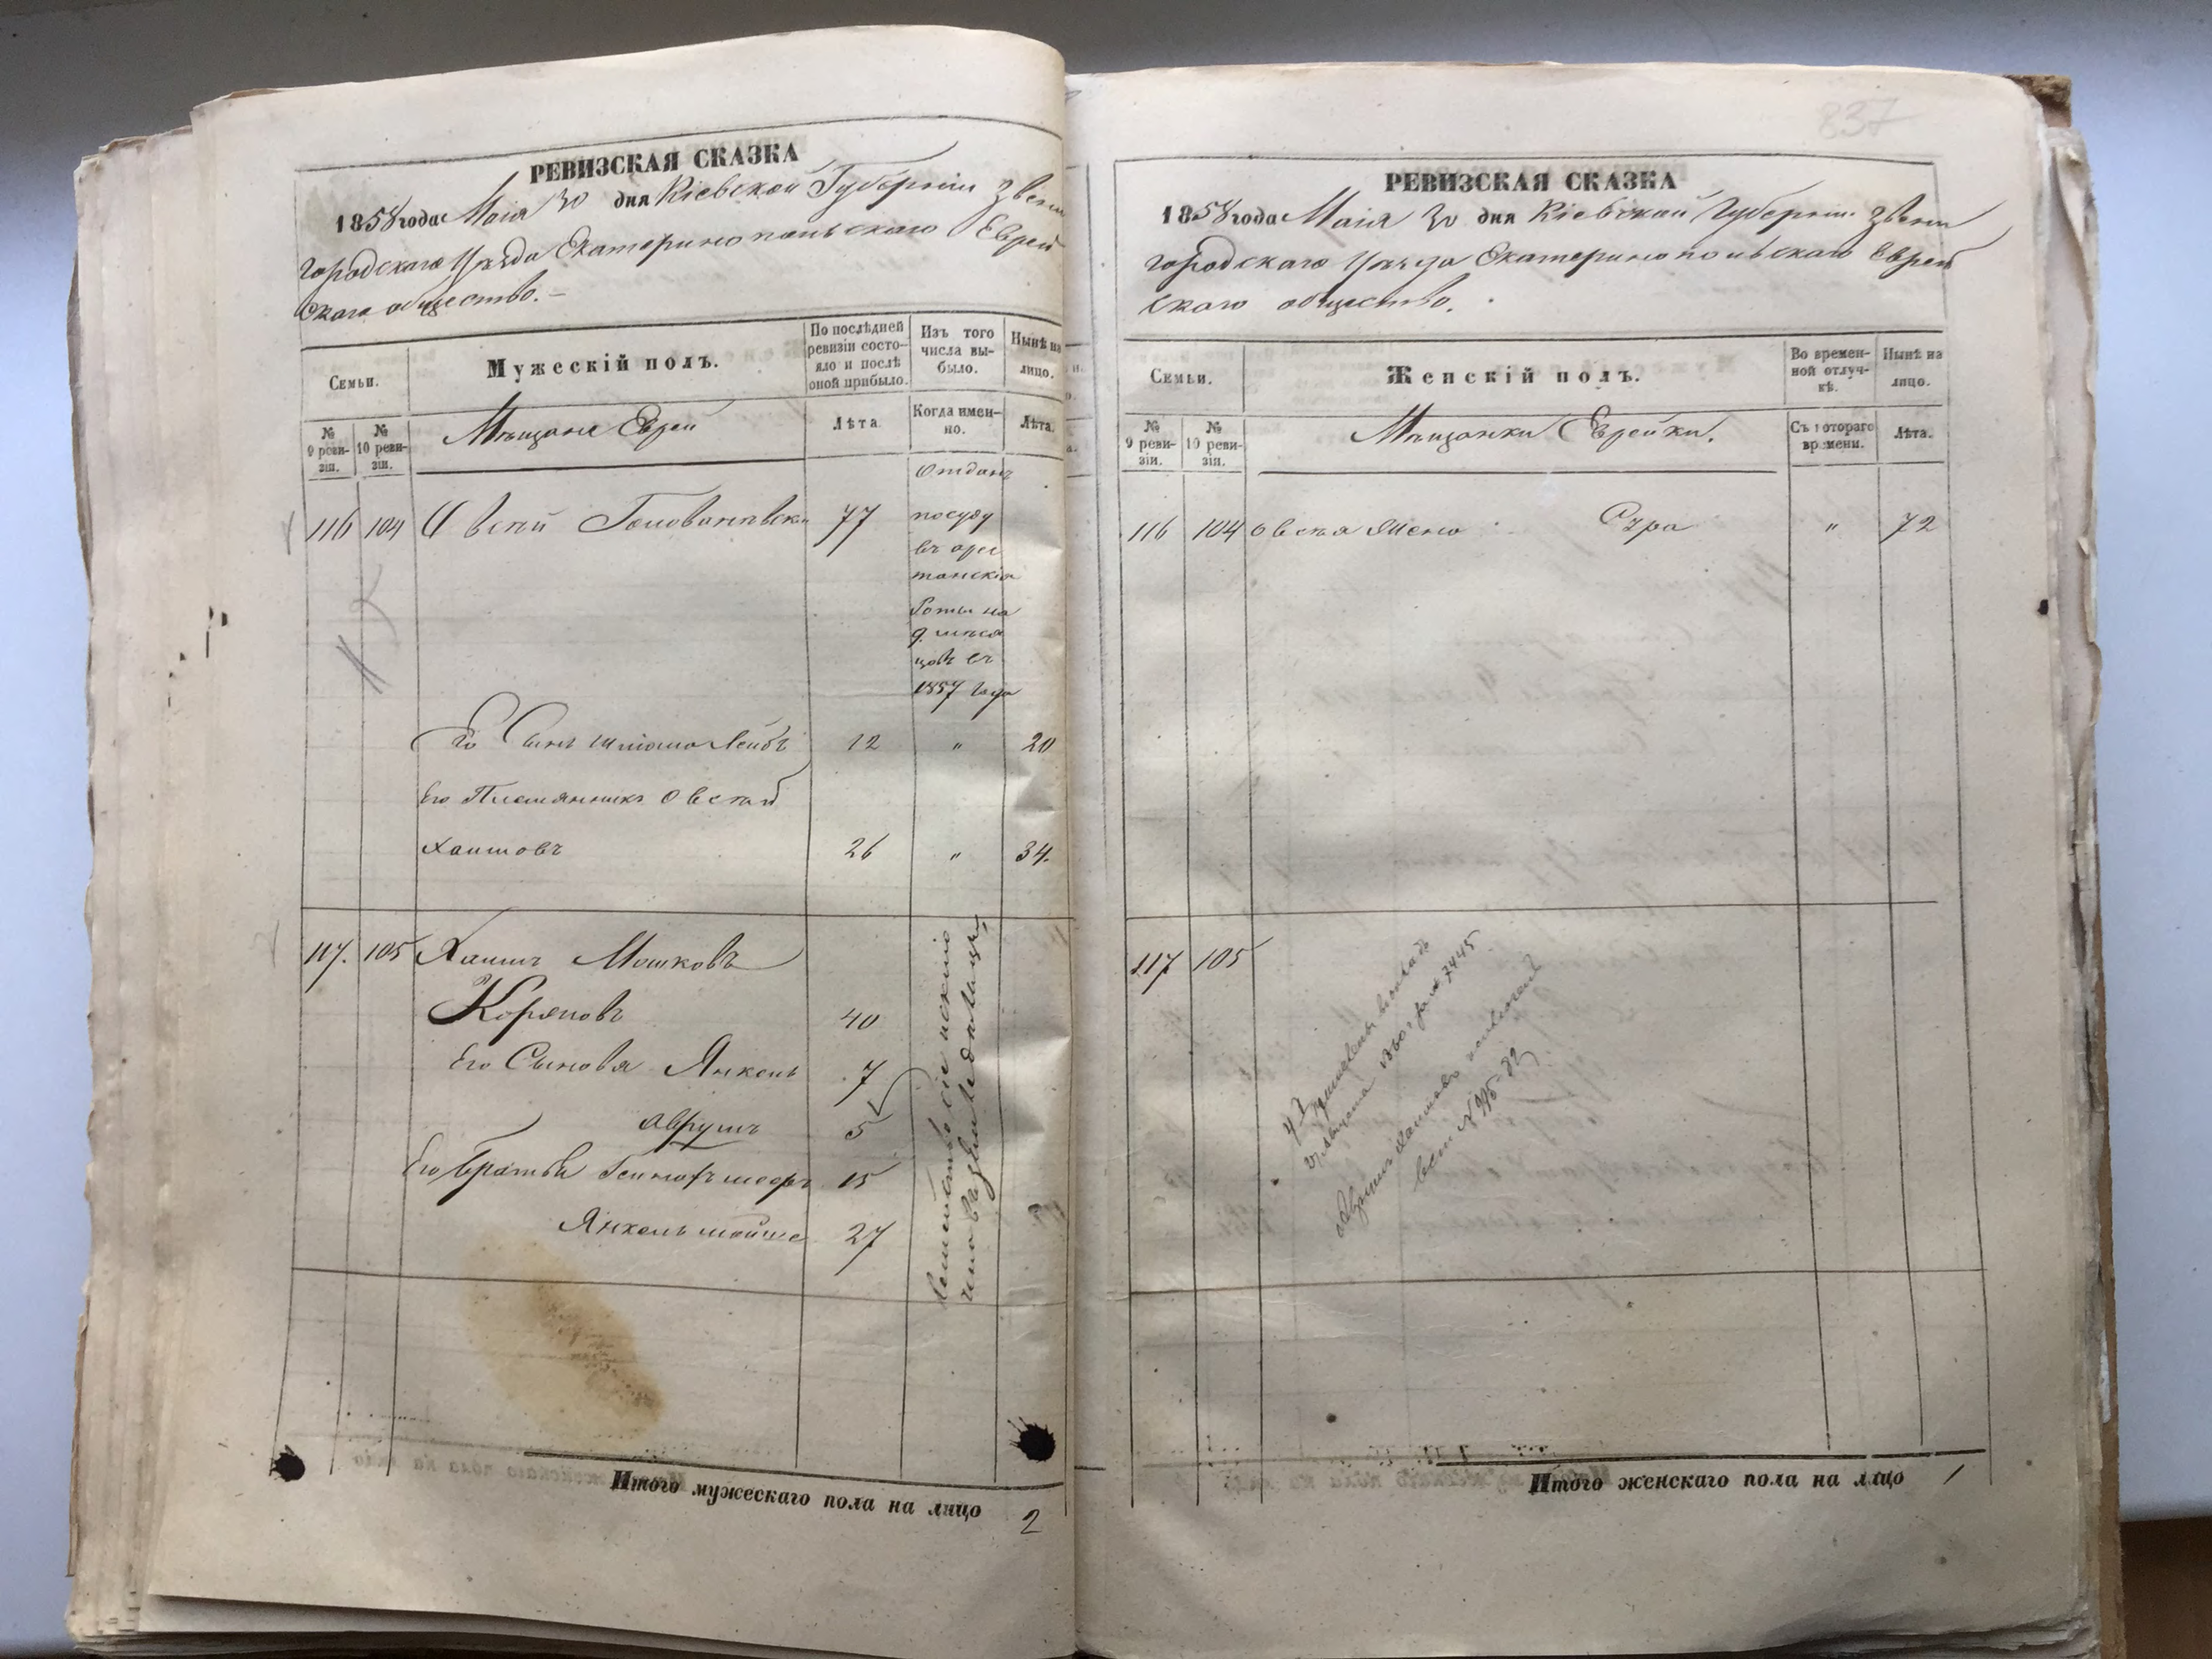 РЕВИЗСКАЯ СКАЗКА
1858 года Маія 30 дня Кіевской Губерніи Звени
городскаго Уѣзда Екатеринопольскаго Еврей
скаго общество.
Семьи.
Мужескій полъ.
По послѣдней ревизіи состояло и послѣ оной прибыло.
Изъ того числа выбыло.
Нынѣ на лицо.
№ 9 ревизіи.
№ 10 ревизіи.
Мѣщане Евреи
Лѣта
Когда именно.
Лѣта.
Отданъ
116 104 Овсѣй Голованѣвскі 77 посуду
въ арес
танскія
Роты на
9 мѣся
цовъ съ
1857 года
Его Сынъ Шліома Лейбъ 12 " 20
Его Племянникъ Овсѣй
Хаимовъ 26 " 34.
117. 105 Хаимъ Мошковъ
Коряповъ 40
Его Сыновя Янкель 7
Аврумъ 5
Его братья 15
Янкель мойше 27
Семейство сіе
837
РЕВИЗСКАЯ СКАЗКА
1858 года Маія 30 дня Кіевской Губерніи Звени
городскаго Уѣзда Екатеринопольскаго Еврей
скаго общество.
Семьи.
Женскій полъ.
Во временной отлучкѣ.
Нынѣ на лицо.
№ 9 ревизіи.
№ 10 ревизія.
Мѣщанки Еврейки.
Съ котораго времени.
Лѣта.
116 104 Овсѣя Жена Сура " 72
117 105
Итого мужескаго пола на лицо 2
Итого женскаго пола на лицо 1